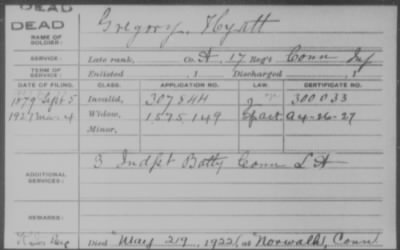 DEAD
DEAD
Gregory, Hyatt
NAME OF
SOLDIER:
SERVICE:
Late rank, Co. A, 17 Reg't Conn Inf
TERM OF
SERVICE:
Enlisted , 1 Discharged , 1
DATE OF FILING. CLASS. APPLICATION NO. LAW. CERTIFICATE NO.
1879 Sept 5 Invalid, 307844 300033
1927 Mar 4 Widow, 1575149 A 4-26-27
Minor,
ADDITIONAL
SERVICES:
3 Indpt Batty Conn L A
REMARKS:
Died May 1922, at Norwalk, Conn